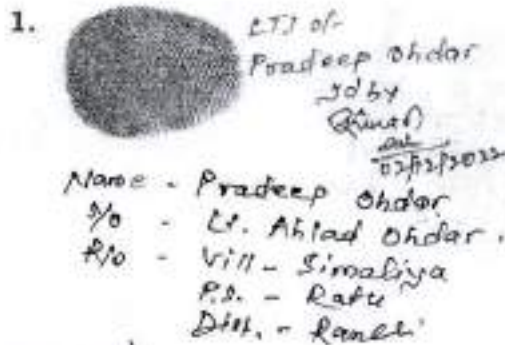 1.
LTI of
Pradeep Ohdar
Id by
02/12/2022
Name - Pradeep Ohdar
S/o - Lt. Ahlad Ohdar.
R/o - Vill - Simaliya
P.S. - Ratu
Dist. - Ranchi